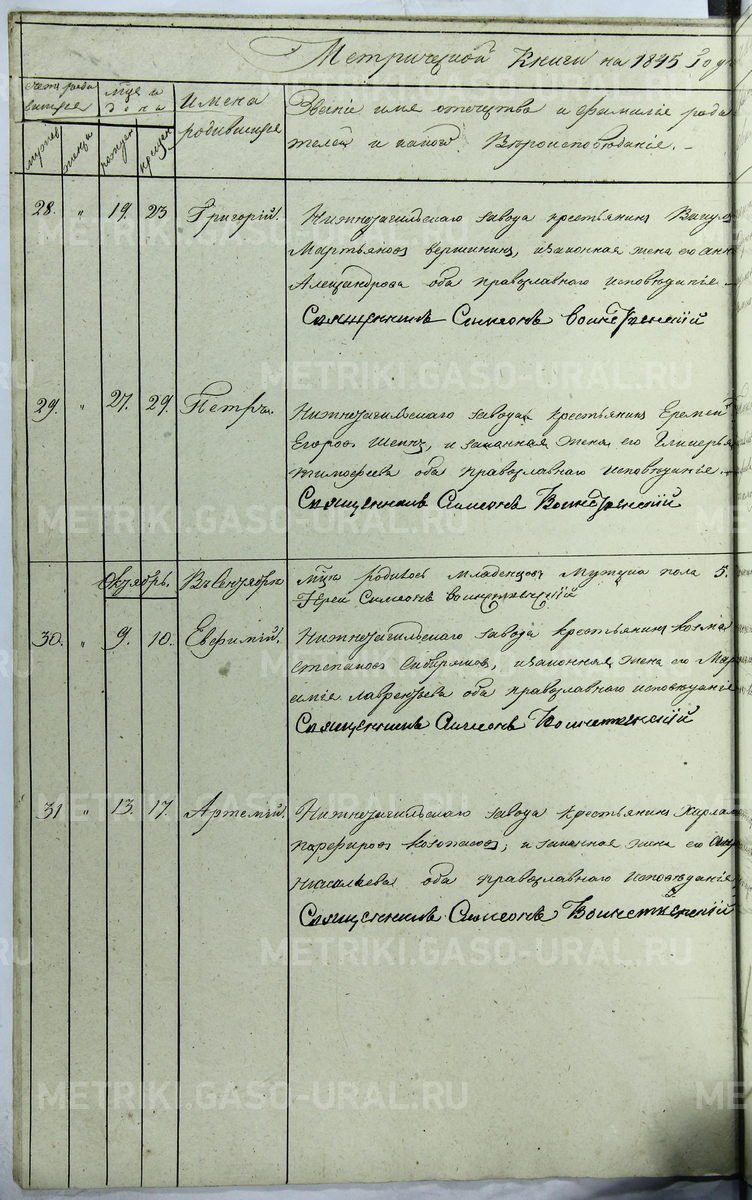 Метрической Книги на 1845 Годъ
Счетъ роди
вшихся
Мца и
Дена
мужеск
женска
рожден
крещен
Имена
родившихся
Званіе имя отечества и фамиліе роди
телей и какого Вѣроисповѣданіе. –
28. " 19. 23 Григорій.
Нижнетагильскаго завода крестьянинъ Викулъ
Мартьяновъ вершининъ, изаконная жена его Анна
Александрова оба православнаго исповѣданіе –
Священникъ Симеонъ Воинственскій
29. " 27. 29. Петръ.
Нижнетагильскаго завода крестьянинъ Еремей
Егоровъ Шеинъ, и законная жена его Гликерья
тимофеева оба православнаго исповѣданіе. –
Священникъ Симеонъ Воинственскій
Октябрь. Въ Сентябрѣ мцѣ родилось младенцовъ Мужска пола 5.
Іерей Симеонъ Воинственскій
30. " 9. 10. Евфимій.
Нижнетагильскаго завода крестьянинъ козма
степановъ Сибиряковъ, изаконная жена его
лаврентьева оба православнаго исповѣданіе
Священникъ Симеонъ Воинственскій
31 " 13. 17. Артемій.
Нижнетагильскаго завода крестьянинъ Харлам
парфировъ козопасовъ, и законная жена его
оба православнаго исповѣданіе
Священникъ Симеонъ Воинственскій
METRIKI.GASO-URAL.RU